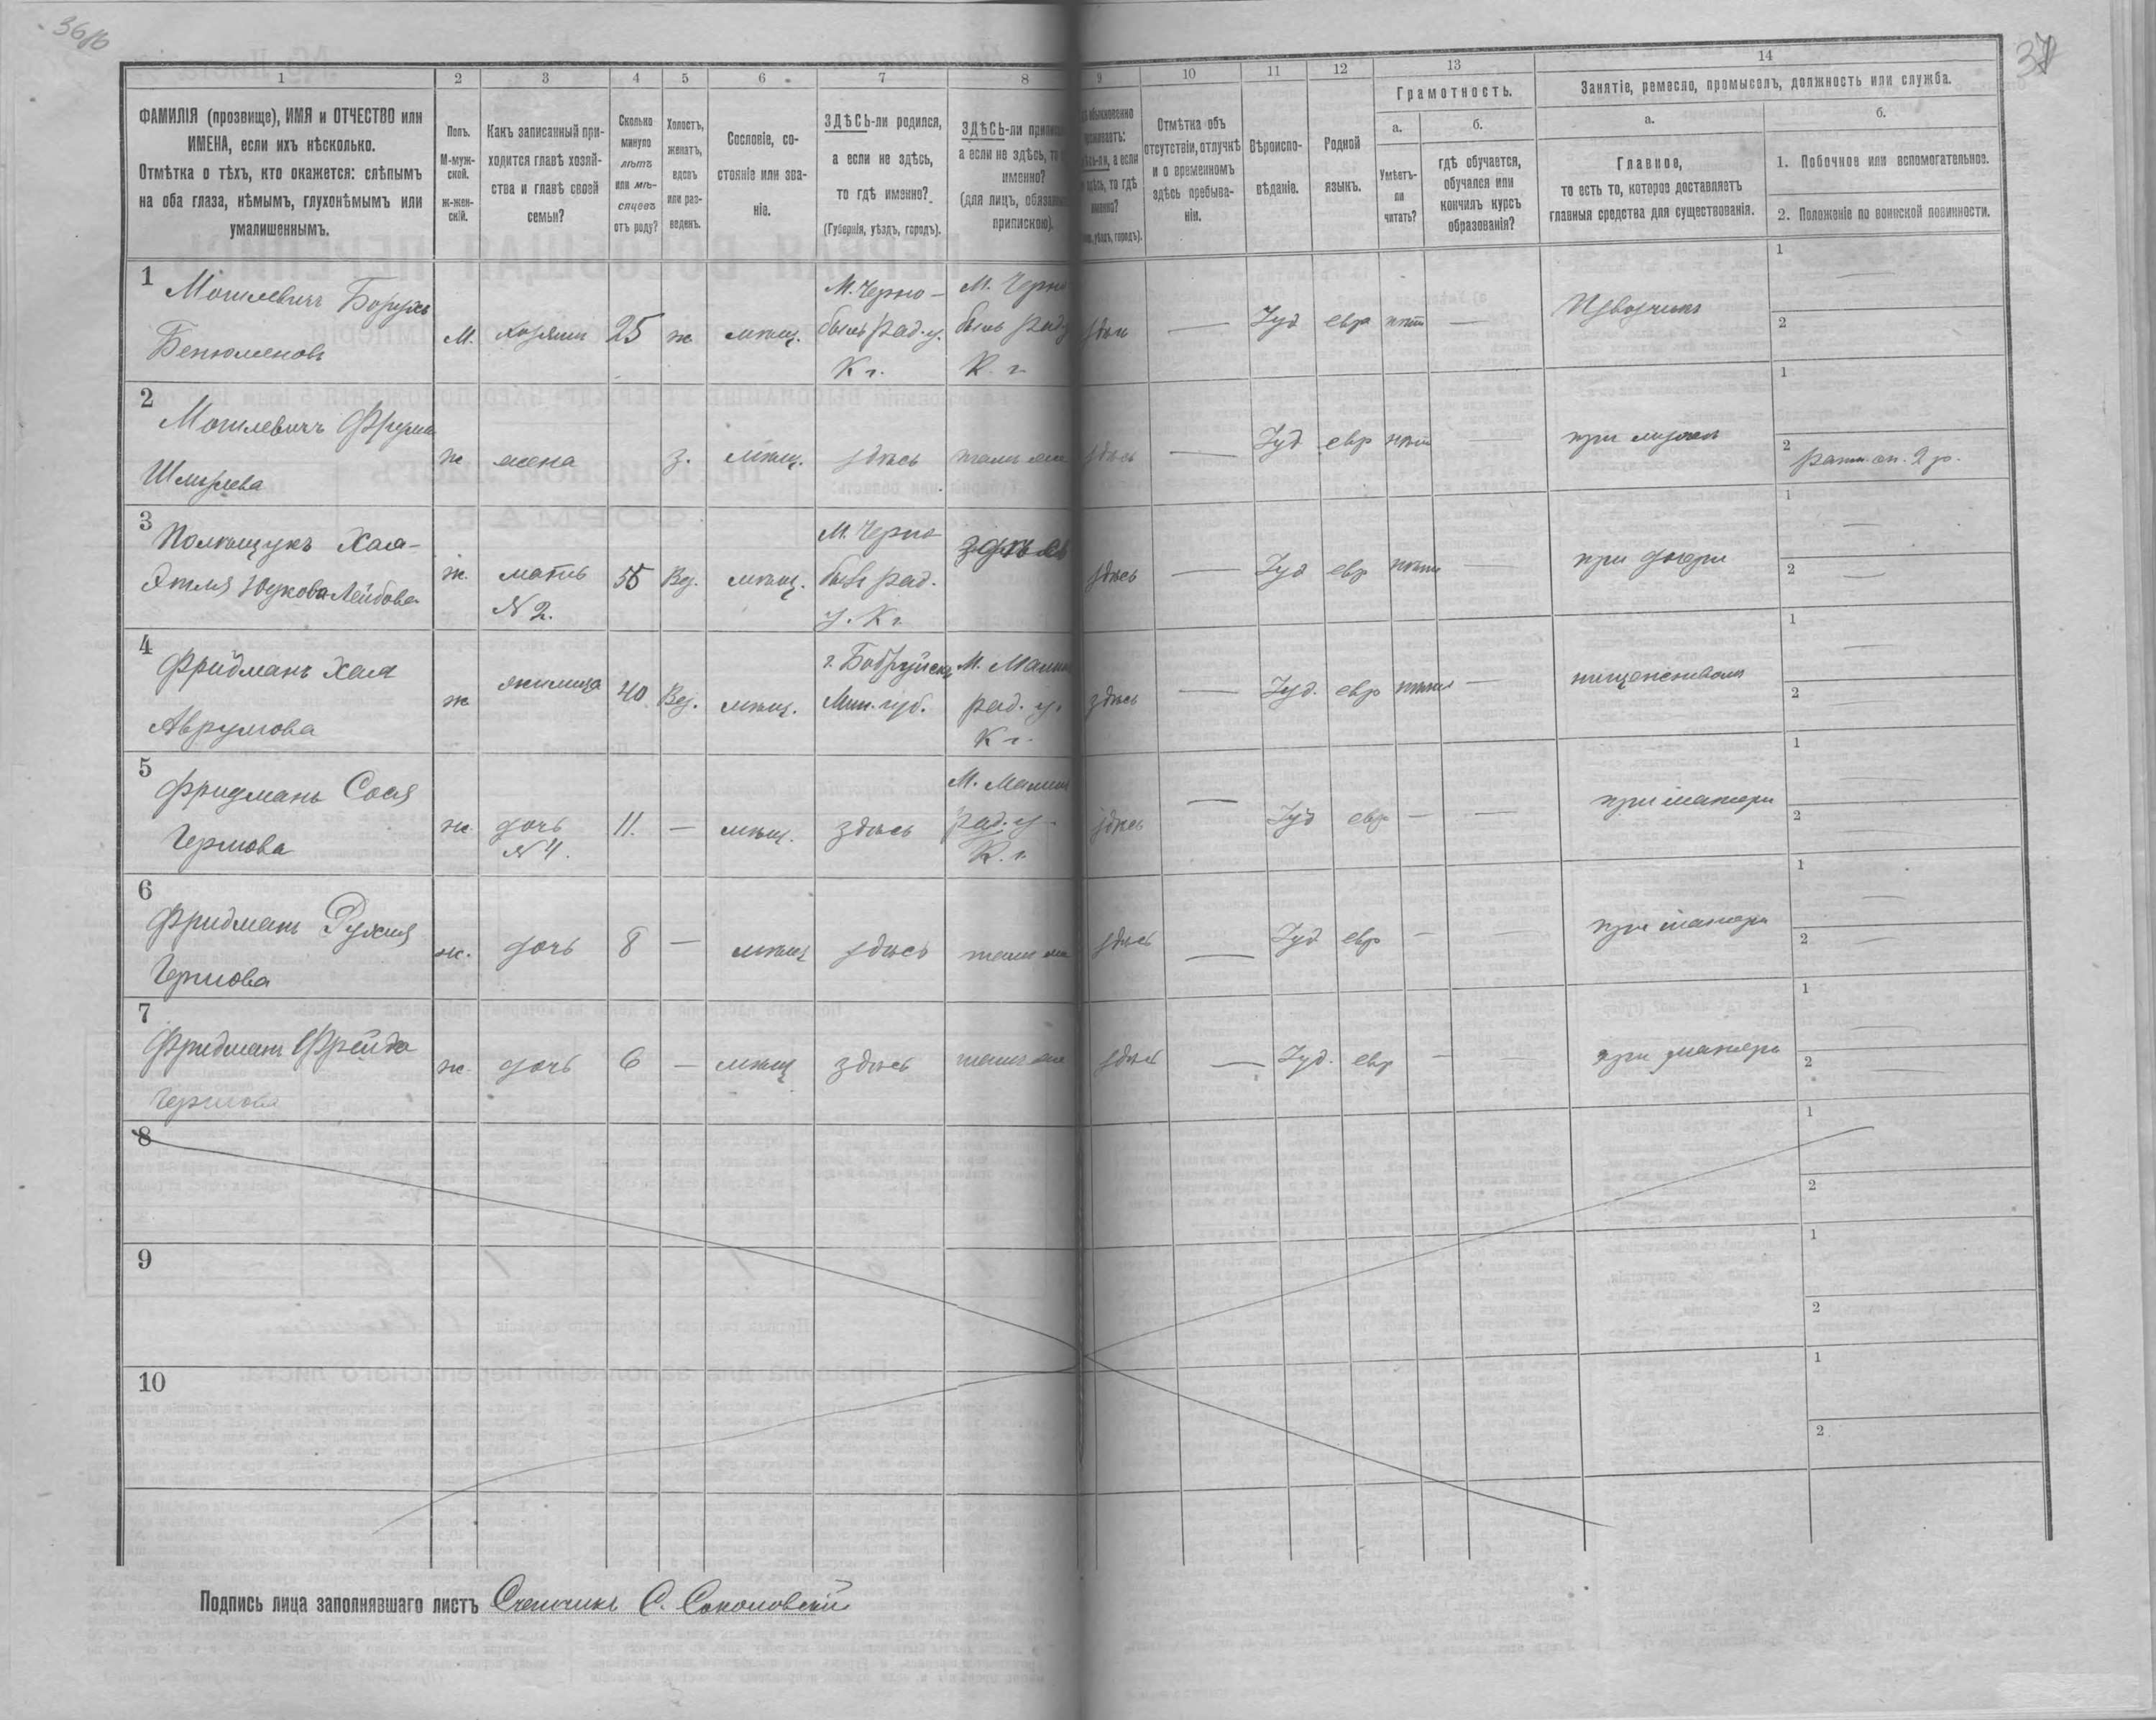 36
37
1 2 3 4 5 6 7 8 9 10 11 12 13 14
ФАМИЛІЯ (прозвище), ИМЯ и ОТЧЕСТВО или
ИМЕНА, если ихъ нѣсколько.
Отмѣтка о тѣхъ, кто окажется: слѣпымъ
на оба глаза, нѣмымъ, глухонѣмымъ или
умалишеннымъ.
Полъ.
М-муж-
ской.
Ж-жен-
скій.
Какъ записанный при-
ходится главѣ хозяй-
ства и главѣ своей
семьи?
Сколько
минуло
лѣтъ
или мѣ-
сяцевъ
отъ роду?
Холостъ,
женатъ,
вдовъ
или раз-
веденъ.
Сословіе, со-
стояніе или зва-
ніе.
ЗДѢСЬ-ли родился,
а если не здѣсь,
то гдѣ именно?
(Губернія, уѣздъ, городъ).
ЗДѢСЬ-ли
а если не здѣсь,
именно?
(для лицъ,
припискою).
а если
то гдѣ
уѣздъ, городъ).
Отмѣтка объ
отсутствіи, отлучкѣ
и о временномъ
здѣсь пребыва-
ніи.
Вѣроиспо-
вѣданіе.
Родной
языкъ.
Грамотность.
а.
б.
Умѣетъ-
ли
читать?
гдѣ обучается,
обучался или
кончилъ курсъ
образованія?
Занятіе, ремесло, промыселъ, должность или служба.
а.
б.
Главное,
то есть то, которое доставляетъ
главныя средства для существованія.
1. Побочное или вспомогательное.
2. Положеніе по воинской повинности.
1 Могилевичъ Борухъ
Бенюменовъ
М. хозяинъ 25 ж мѣщ.
М. Черно-
быль рад. у.
К г.
М. Черно
быль рад у
К. г.
— Іуд евр нѣтъ — Извозчикъ
1 —
2
2 Могилевичъ Фрума
Шмулева
ж жена з. мѣщ. здѣсь тамъ же здѣсь — Іуд евр нѣтъ — при мужѣ
1
2 ратн. оп. 2 р.
3 Полѣщукъ Хая-
Этля Лейбова
ж. мать
№ 2.
55 Вд. мѣщ.
М. Черно
быль рад.
у. К г.
здѣсь
здѣсь — Іуд евр нѣтъ — при дочери
1 —
2 —
4 Фридманъ Хая
Аврумова
ж жилица 40 Вд. мѣщ.
г. Бобруйскъ
Мин. губ.
М. Малинъ
рад. у.
К г.
здѣсь — Іуд. евр нѣтъ —
1 —
2 —
5 Фридманъ Сося
Гершова
ж. дочь
№ 4.
11. — мѣщ. здѣсь
М. Малинъ
рад. у
К. г.
здѣсь — Іуд евр — — при матери
1 —
2 —
6 Фридманъ Рухля
Гершова
ж. дочь 8 — мѣщ здѣсь тамъ же здѣсь — Іуд евр — — при матери
1 —
2 —
7 Фридманъ Фрейда
Гершова
ж. дочь 6 — мѣщ здѣсь тамъ же здѣсь — Іуд. евр — — при матери
1 —
2 —
8
1
2
9
1
2
10
1
2
Подпись лица заполнявшаго листъ Счетчикъ С. Соколовскій